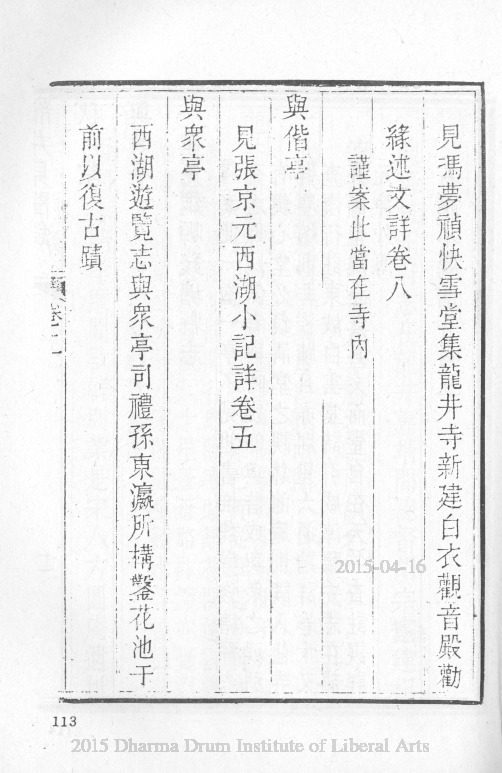 見馮夢禎快雪堂集龍井寺新建白衣觀音殿勸
緣述文詳卷八
謹案此當在寺內
與偕亭
見張京元西湖小記詳卷五
與衆亭
西湖遊覽志與衆亭司禮孫東瀛所構鑿花池于
前以復古蹟
卷二
2015-04-16
113
2015 Dharma Drum Institute of Liberal Arts